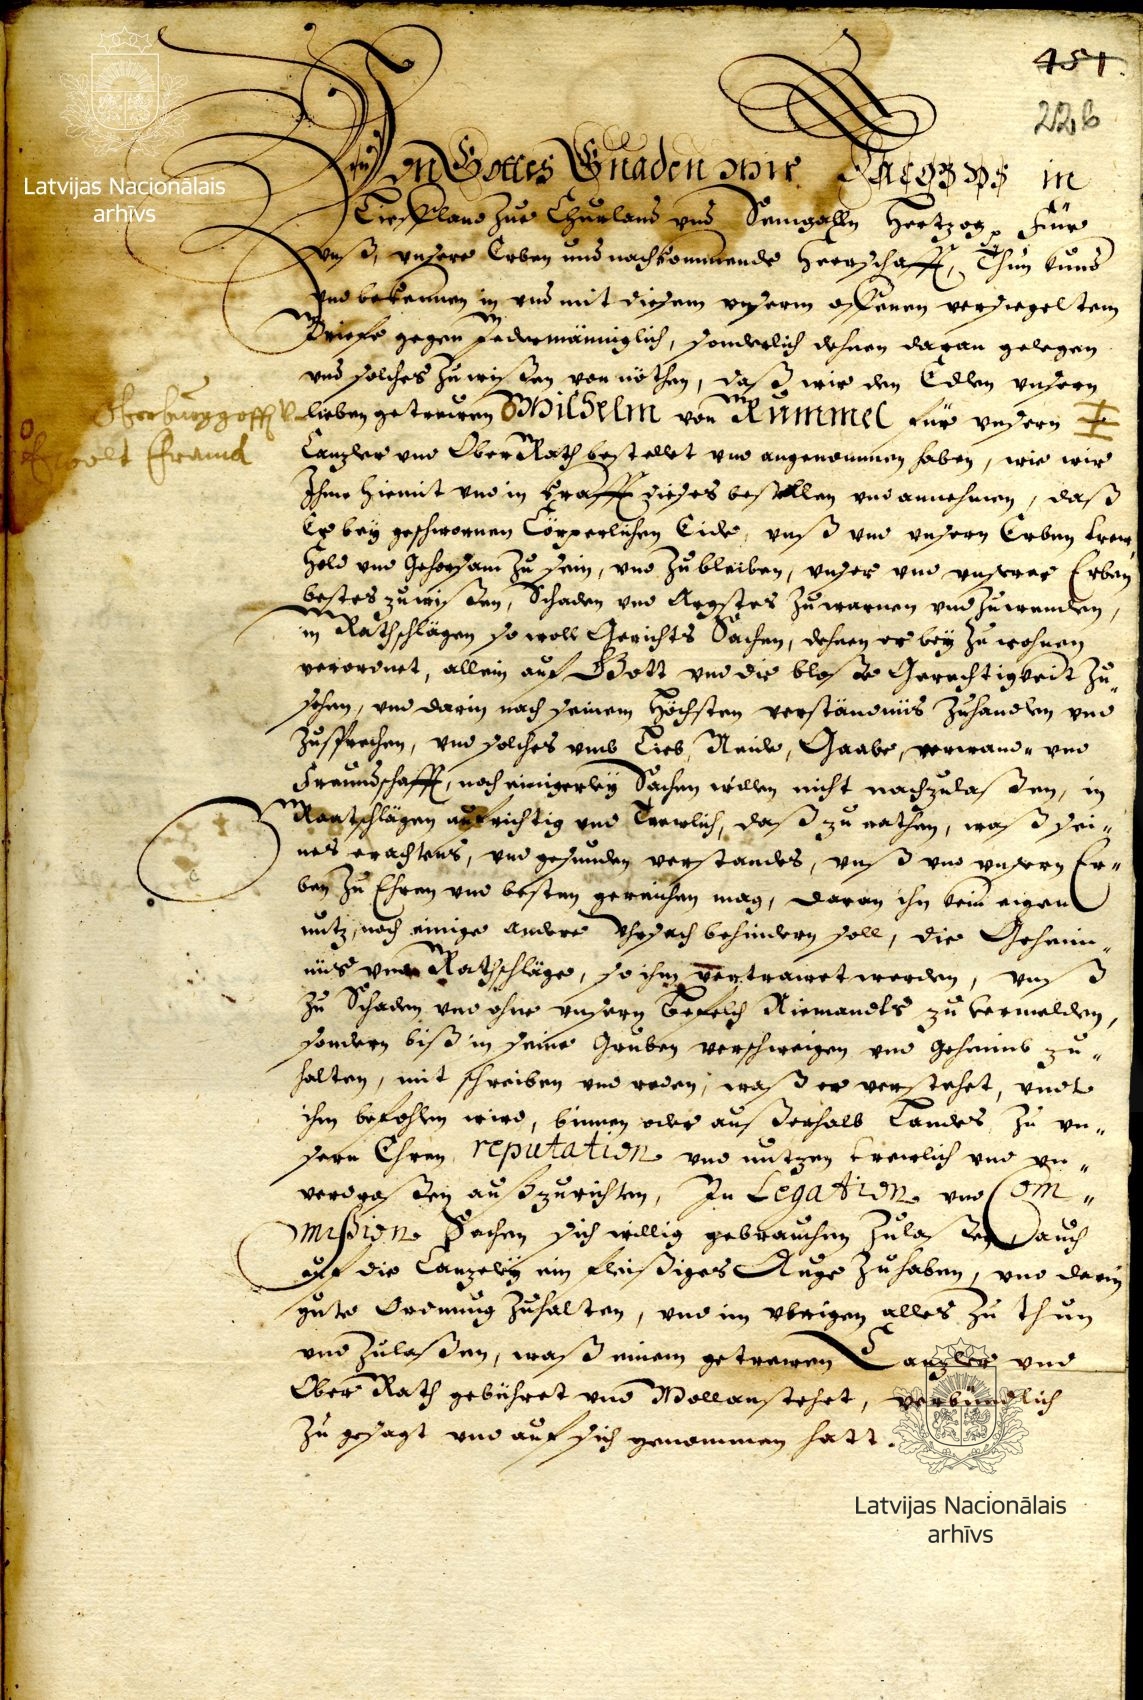 451.
226
Latvijas Nacionālais
arhīvs
Von Gottes Gnaden wir Jacobus in
Lieffland zue Churland und Semgalln Hertzog, Für
unß, unsere Erben und nachkommende Herrschafft, Thun kund
und bekennen in und mit diesem unserm offenen versiegeltem
Briefe gegen Jedermänniglich, sonderlich dehnen daran gelegen
und solches zu wißen von nöthen, daß wir den Edlen unsern
lieben getreuen Wilhelm von Rummel für unsern
Oberburggraff
Canzler und Ober Rath bestellet und angenommen haben, wie wir
Ihme hiemit und in krafft dieses bestellen und annehmen, daß
Er bey geschwornen Cörperlichen Eide, unß und unsern Erben trew,
Hold und Gehorsam zu sein, und zubleiben, unser und unserer Erben
bestes zuwißen, Schaden und Argstes zuwarnen und zuwenden,
in Rathschlägen so woll Gerichts Sachen, dehnen er bey zu wohnen
verordnet, allein auf Gott und die bloße Gerechtigkeit zu
sehen, und darin nach seinem Höchsten verständnüs zuhandlen und
zusprechen, und solches umb Lieb, Neide, Gaabe, verwand- und
Freundschafft, noch einigerley Sachen willen nicht nachzulaßen, in
Raatschlägen aufrichtig und Trewlich, daß zu rathen, waß sei-
nes erachtens, und gesunden verstandes, unß und unsern Er-
ben zu Ehren und besten gereichen mag, daran ihn kein eigen
nutz, noch einige andere Uhrsach behindern soll, die Geheim-
nüs und Rathschläge, so ihm vertrawet werden, unß
zu Schaden und ohne unsern Befelch Niemandts zu vermelden,
sondern biß in seine Gruben verschweigen und Geheimb zu-
halten, mit schreiben und reden, waß er verstehet, undt
ihm befohlen wird, binnen oder außerhalb Landes, zu un-
sern Ehren, reputation und nutzen trewlich und un-
verdroßen außzurichten, In Legation und Com-
mißion Sachen sich willig gebrauchen zulaßen, auch
auf die Canzeley ein fleißiges Auge zuhaben, und darin
gute Ordnung zuhalten, und im ubrigen alles zu thun
und zulaßen, waß einem getrewen Canzler und
Ober Rath gebühret und Wollanstehet, verbindlich
zu gesagt und auf sich genommen hatt.
Latvijas Nacionālais
arhīvs